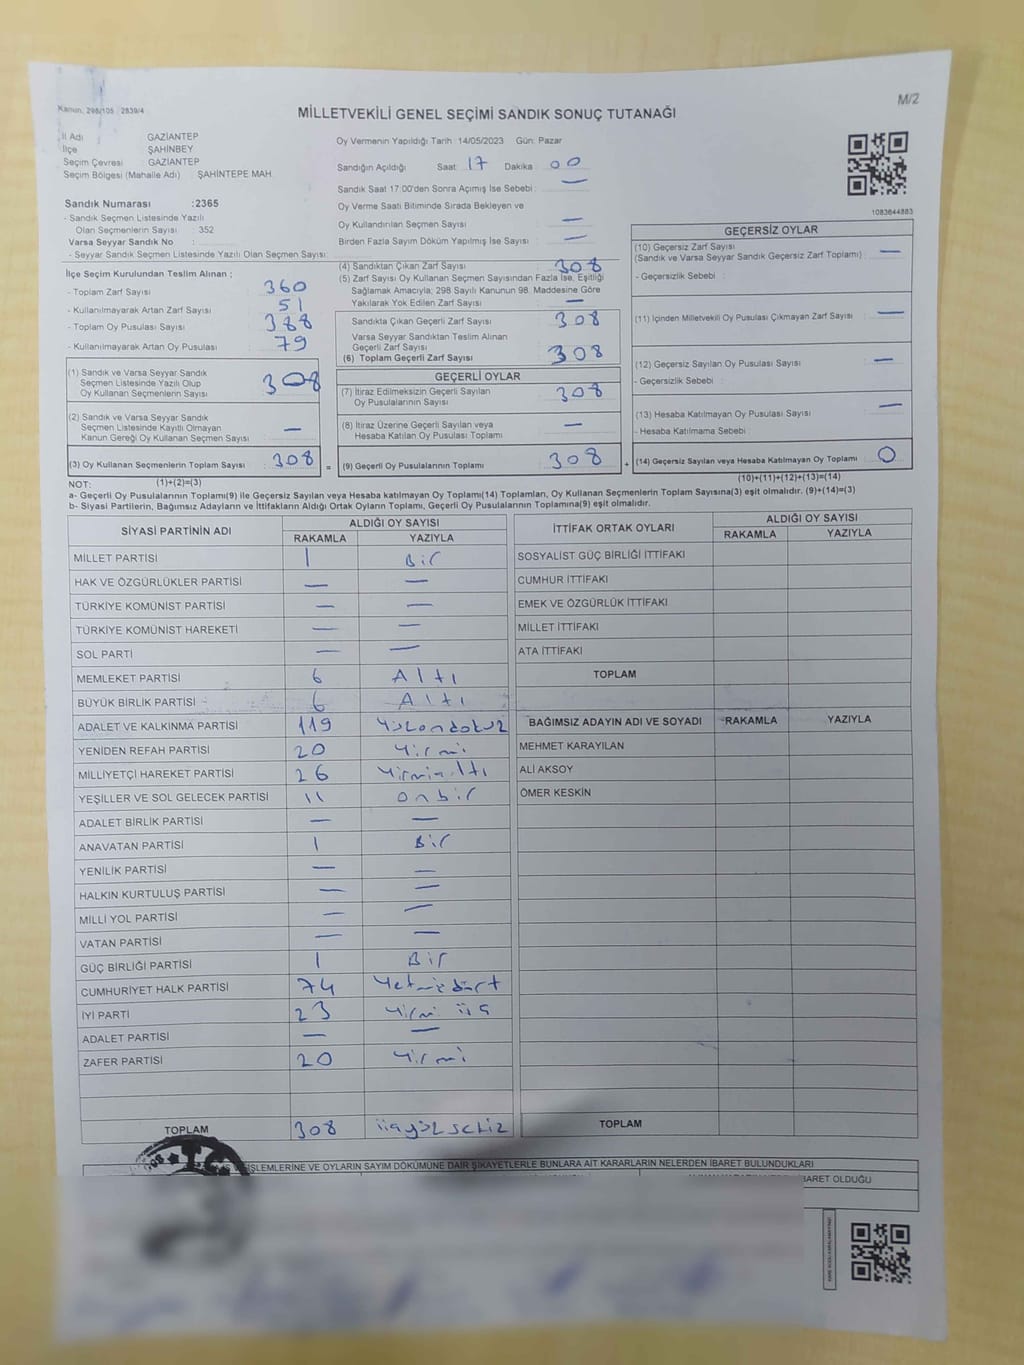 Kanun, 298/105 2839/4
M/2
MİLLETVEKİLİ GENEL SEÇİMİ SANDIK SONUÇ TUTANAĞI
İl Adı GAZİANTEP
İlçe ŞAHİNBEY
Seçim Çevresi GAZİANTEP
Seçim Bölgesi (Mahalle Adı) : ŞAHİNTEPE MAH.
Sandık Numarası :2365
- Sandık Seçmen Listesinde Yazılı
Olan Seçmenlerin Sayısı : 352
Varsa Seyyar Sandık No :
- Seyyar Sandık Seçmen Listesinde Yazılı Olan Seçmen Sayısı:
Oy Vermenin Yapıldığı Tarih :14/05/2023 Gün: Pazar
Sandığın Açıldığı Saat: 17 Dakika: 00
Sandık Saat 17:00'den Sonra Açımış İse Sebebi : —
Oy Verme Saati Bitiminde Sırada Bekleyen ve
Oy Kullandırılan Seçmen Sayısı —
Birden Fazla Sayım Döküm Yapılmış İse Sayısı : —
1083644883
İlçe Seçim Kurulundan Teslim Alınan ;
- Toplam Zarf Sayısı : 360
- Kullanılmayarak Artan Zarf Sayısı : 51
- Toplam Oy Pusulası Sayısı : 388
- Kullanılmayarak Artan Oy Pusulası : 79
(1) Sandık ve Varsa Seyyar Sandık
Seçmen Listesinde Yazılı Olup
Oy Kullanan Seçmenlerin Sayısı : 308
(2) Sandık ve Varsa Seyyar Sandık
Seçmen Listesinde Kayıtlı Olmayan
Kanun Gereği Oy Kullanan Seçmen Sayısı : —
(3) Oy Kullanan Seçmenlerin Toplam Sayısı : 308
(4) Sandıktan Çıkan Zarf Sayısı : 308
(5) Zarf Sayısı Oy Kullanan Seçmen Sayısından Fazla İse, Eşitliği
Sağlamak Amacıyla; 298 Sayılı Kanunun 98. Maddesine Göre
Yakılarak Yok Edilen Zarf Sayısı : —
Sandıkta Çıkan Geçerli Zarf Sayısı : 308
Varsa Seyyar Sandıktan Teslim Alınan
Geçerli Zarf Sayısı :
(6) Toplam Geçerli Zarf Sayısı : 308
GEÇERLİ OYLAR
(7) İtiraz Edilmeksizin Geçerli Sayılan
Oy Pusulalarının Sayısı : 308
(8) İtiraz Üzerine Geçerli Sayılan veya
Hesaba Katılan Oy Pusulası Toplamı : —
= (9) Geçerli Oy Pusulalarının Toplamı : 308 +
GEÇERSİZ OYLAR
(10) Geçersiz Zarf Sayısı
(Sandık ve Varsa Seyyar Sandık Geçersiz Zarf Toplamı) : —
- Geçersizlik Sebebi :
(11) İçinden Milletvekili Oy Pusulası Çıkmayan Zarf Sayısı : —
(12) Geçersiz Sayılan Oy Pusulası Sayısı : —
- Geçersizlik Sebebi :
(13) Hesaba Katılmayan Oy Pusulası Sayısı : —
- Hesaba Katılmama Sebebi :
(14) Geçersiz Sayılan veya Hesaba Katılmayan Oy Toplamı : 0
NOT: (1)+(2)=(3) (10)+(11)+(12)+(13)=(14)
a- Geçerli Oy Pusulalarının Toplamı(9) ile Geçersiz Sayılan veya Hesaba katılmayan Oy Toplamı(14) Toplamları, Oy Kullanan Seçmenlerin Toplam Sayısına(3) eşit olmalıdır. (9)+(14)=(3)
b- Siyasi Partilerin, Bağımsız Adayların ve İttifakların Aldığı Ortak Oyların Toplamı, Geçerli Oy Pusulalarının Toplamına(9) eşit olmalıdır.
SİYASİ PARTİNİN ADI ALDIĞI OY SAYISI
RAKAMLA YAZIYLA
MİLLET PARTİSİ 1 Bir
HAK VE ÖZGÜRLÜKLER PARTİSİ — —
TÜRKİYE KOMÜNİST PARTİSİ — —
TÜRKİYE KOMÜNİST HAREKETİ — —
SOL PARTİ — —
MEMLEKET PARTİSİ 6 Altı
BÜYÜK BİRLİK PARTİSİ 6 Altı
ADALET VE KALKINMA PARTİSİ 119 Yüzondokuz
YENİDEN REFAH PARTİSİ 20 Yirmi
MİLLİYETÇİ HAREKET PARTİSİ 26 Yirmialtı
YEŞİLLER VE SOL GELECEK PARTİSİ 11 onbir
ADALET BİRLİK PARTİSİ — —
ANAVATAN PARTİSİ 1 Bir
YENİLİK PARTİSİ — —
HALKIN KURTULUŞ PARTİSİ — —
MİLLİ YOL PARTİSİ — —
VATAN PARTİSİ — —
GÜÇ BİRLİĞİ PARTİSİ 1 Bir
CUMHURİYET HALK PARTİSİ 74 Yetmişdört
İYİ PARTİ 23 Yirmi üç
ADALET PARTİSİ — —
ZAFER PARTİSİ 20 Yirmi
TOPLAM 308 üçyüzsekiz
İTTİFAK ORTAK OYLARI ALDIĞI OY SAYISI
RAKAMLA YAZIYLA
SOSYALİST GÜÇ BİRLİĞİ İTTİFAKI
CUMHUR İTTİFAKI
EMEK VE ÖZGÜRLÜK İTTİFAKI
MİLLET İTTİFAKI
ATA İTTİFAKI
TOPLAM
BAĞIMSIZ ADAYIN ADI VE SOYADI RAKAMLA YAZIYLA
MEHMET KARAYILAN
ALİ AKSOY
ÖMER KESKİN
TOPLAM
İŞLEMLERİNE VE OYLARIN SAYIM DÖKÜMÜNE DAİR ŞİKAYETLERLE BUNLARA AİT KARARLARIN NELERDEN İBARET BULUNDUKLARI
BARET OLDUĞU